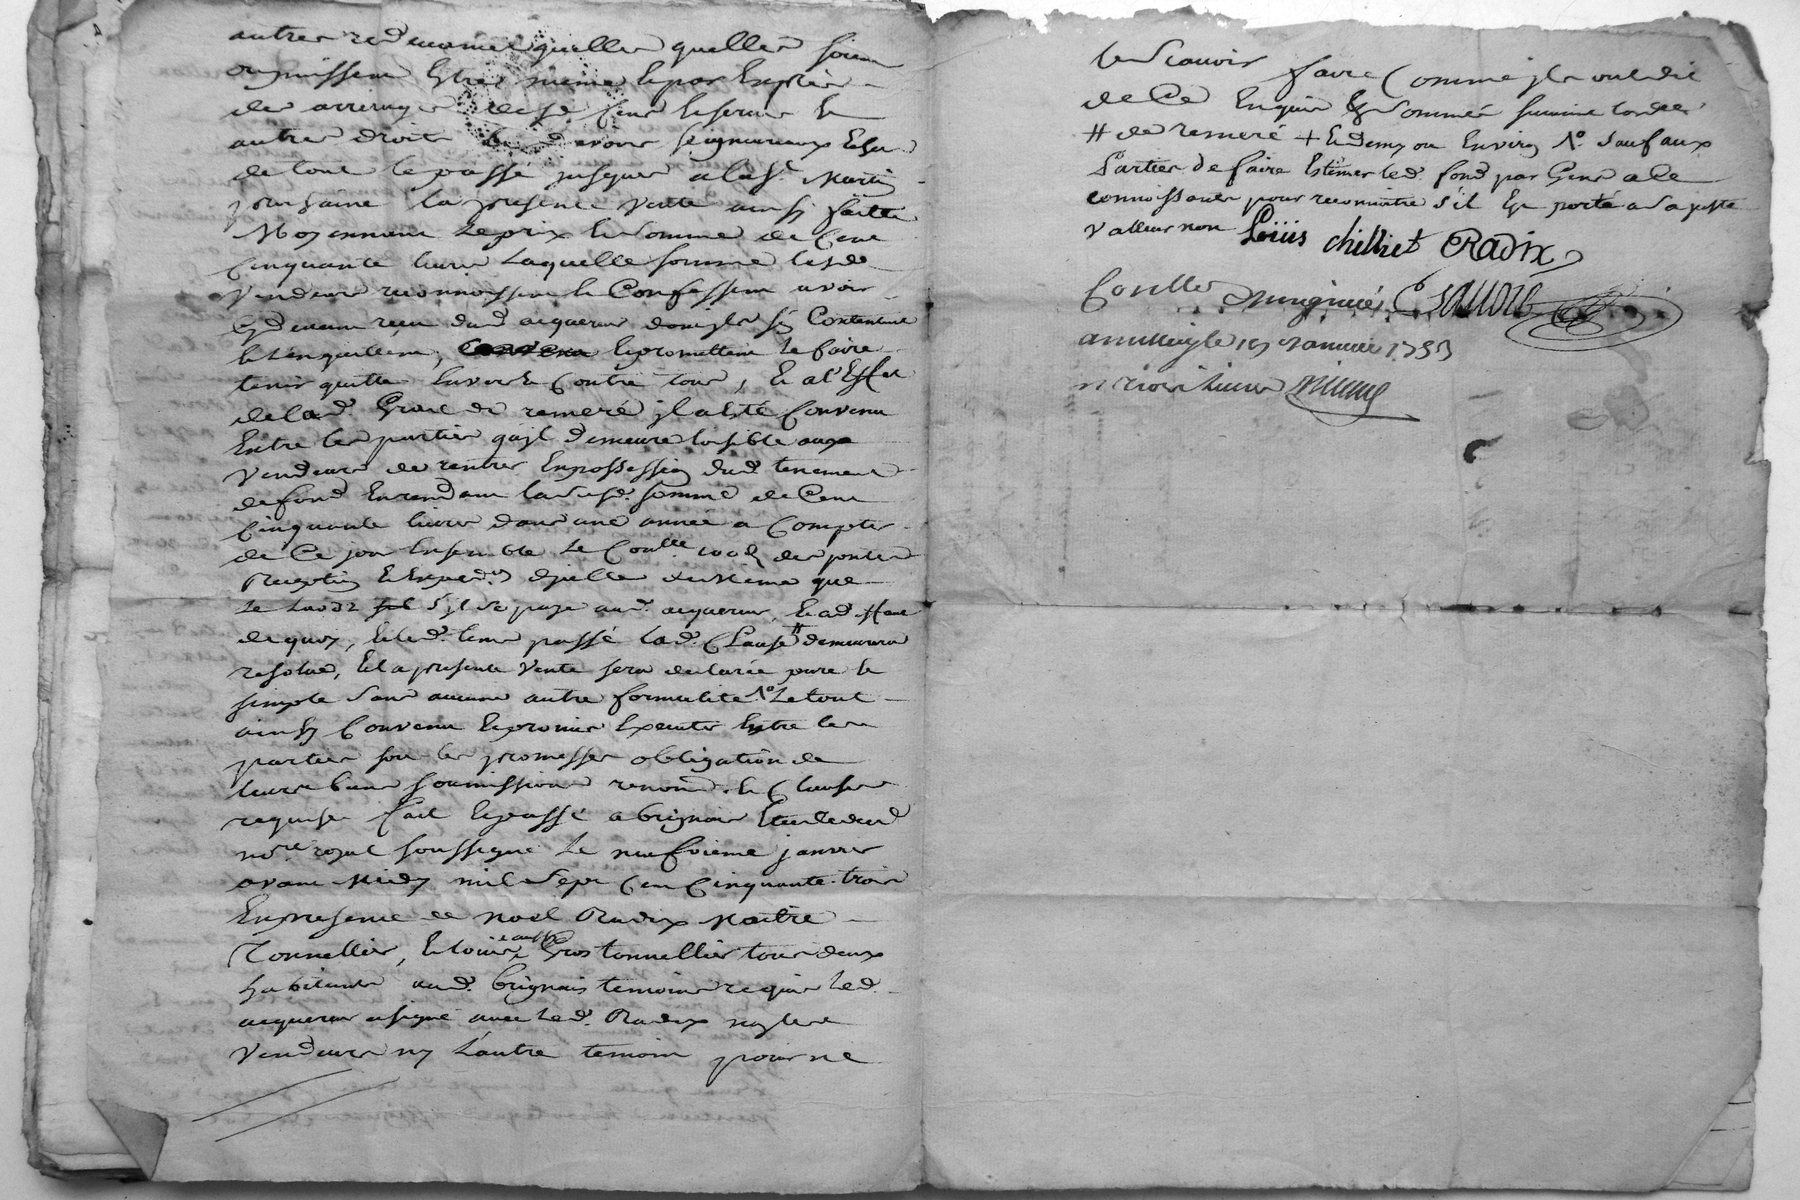 autres redevances quelles quelles soient
ou puissent Estre même et par Exprès
des arrerages cens et servis et
autres droits et devoirs seigneuriaux Et
de tout le passé jusques a la st Martin
prochaine la presente vente ainsy faitte
Moyennant le prix et somme de Cent
Cinquante livres Laquelle somme lesd
vendeurs reconnoissent et Confessent avoir
Cydevant receu dud acquereur dont ils s'en Contentent
et l'en quittent, et promettent le faire
tenir quitte Envers et Contre tous, Et a l'Effet
de lad. Grace de remeré il a esté Convenu
Entre les parties qu'il demeure loisible aux
vendeurs de rentrer En possession dud tenement
de fond En rendant la susd. somme de Cent
Cinquante livres dans une année a Compter
de Ce jour Ensemble le Conlle des
Reception Et Exped.on d'jcelle de même que
le Laods s'il se paye aud. acquereur, Et ad
de quoy, Et led. tems passé lad. Clause # demeurera
resolue, Et la presente vente sera declarée pure et
simple sans aucune autre formalité No Le tout
ainsy Convenu Et promis Executer Entre les
parties sous les promesses obligation de
leurs biens soumissions renon.d et Clauses
requises fait Et passé a brignais Etude dud
nore royal soussigné Le neufvieme janvier
avant Midy mil sept Cent Cinquante trois
En presence de noel Radix Maitre
Tonnellier, Et louis aussy Gros tonnellier tous deux
habitants aud. brignais temoins requis led.
acquereur a signé avec led. Radix non les
Vendeurs ny L'autre temoin pour ne
le sçavoir faire Comme ils ont dit
de Ce Enquis Et sommés suivant lordce
# de remeré + Et demy ou Environ No sauf aux
Parties de faire Estimer led. fond par Gens a Ce
connoissants pour reconnoitre s'il Est porté a sa juste
valleur non Loüis chilliet Radix
Conlle
a le 19 Janvier 1753